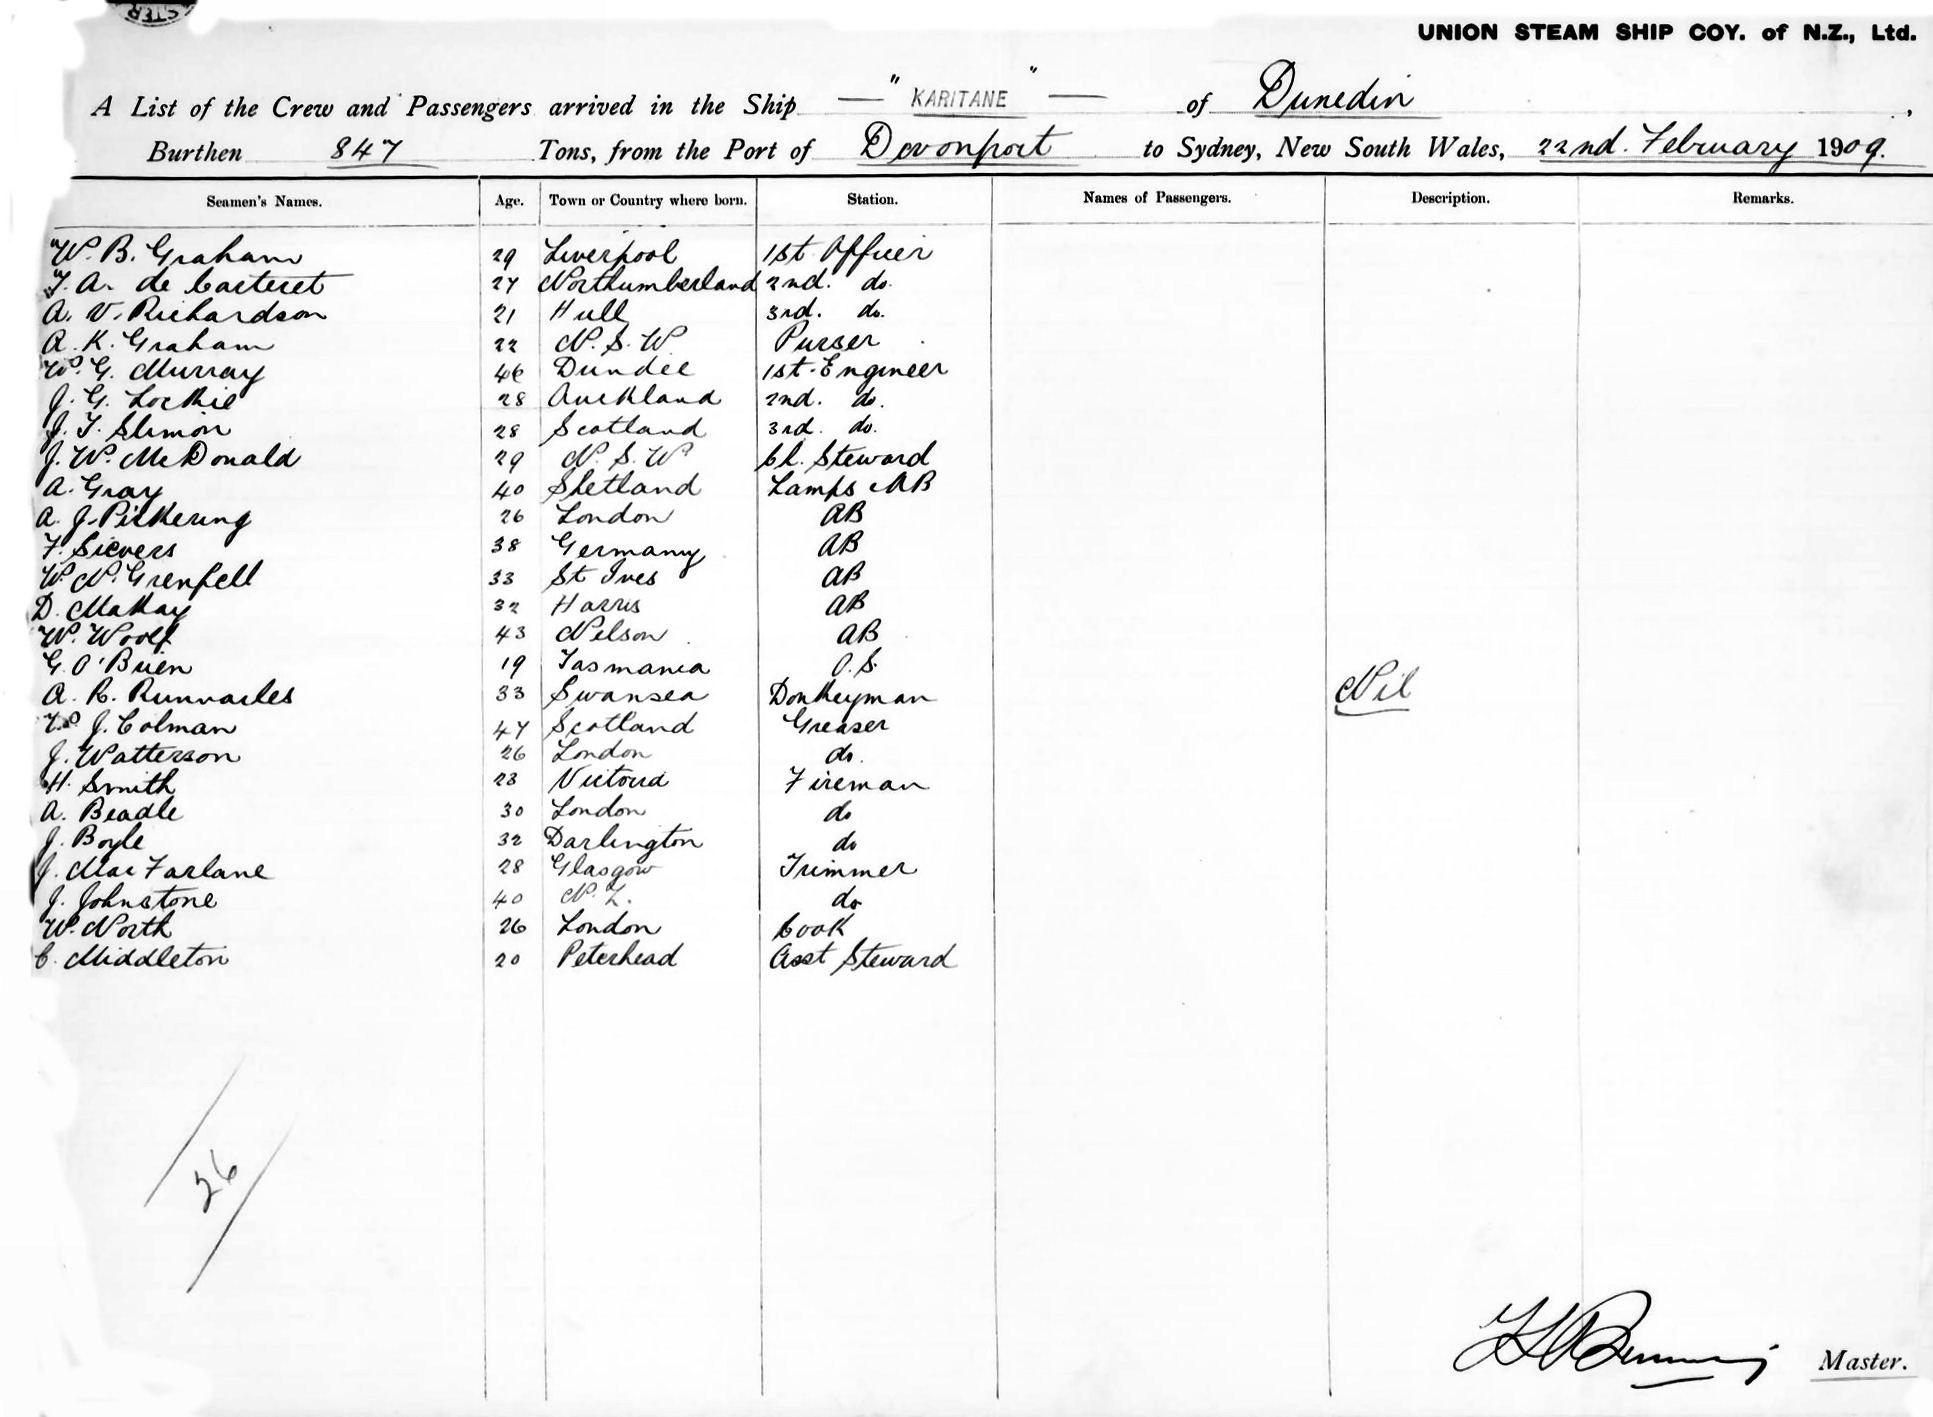 STER
UNION STEAM SHIP COY. of N.Z., Ltd.
A List of the Crew and Passengers arrived in the Ship "KARITANE" of Dunedin,
Burthen 847 Tons, from the Port of Devonport to Sydney, New South Wales, 22nd. February 1909.
Seamen's Names. Age. Town or Country where born. Station. Names of Passengers. Description. Remarks.
W. B. Graham 29 Liverpool 1st Officer
F. A. de Carteret 27 Northumberland 2nd. do.
A. V. Richardson 21 Hull 3rd. do.
A. K. Graham 22 N. S. W Purser
W. G. Murray 46 Dundee 1st Engineer
J. G. Lockie 28 Auckland 2nd. do.
J. F. Slimon 28 Scotland 3rd. do.
J. W. McDonald 29 N. S. W Ch. Steward
A. Gray 40 Shetland Lamps AB
A. J. Pickering 26 London AB
F. Sievers 38 Germany AB
W. N. Grenfell 33 St Ives AB
D. McKay 32 Harris AB
W. Woolf 43 Nelson AB
G. O'Brien 19 Tasmania O.S.
A. R. Runnacles 33 Swansea Donkeyman Nil
W. J. Colman 47 Scotland Greaser
J. Watterson 26 London do.
H. Smith 23 Victoria Fireman
A. Beadle 30 London do
J. Boyle 32 Darlington do
J. MacFarlane 28 Glasgow Trimmer
J. Johnstone 40 N. Z. do
W. North 26 London Cook
C. Middleton 20 Peterhead Asst Steward
26
Master.